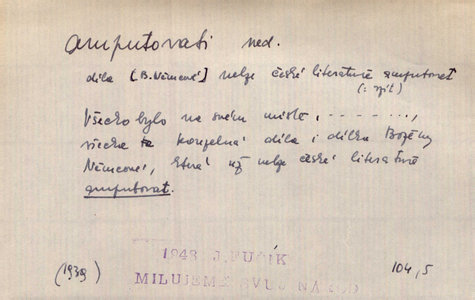 amputovati ned.
díla [B. Němcové] nelze české literatuře amputovat
(: vzít)
Všecko bylo na svém místě, - - - - - - ,
všecka ta kouzelná díla i dílka Boženy
Němcové, která už nelze české literatuře
amputovat.
1948 J. FUČÍK
MILUJEME SVŮJ NÁROD
(1939) 104,5